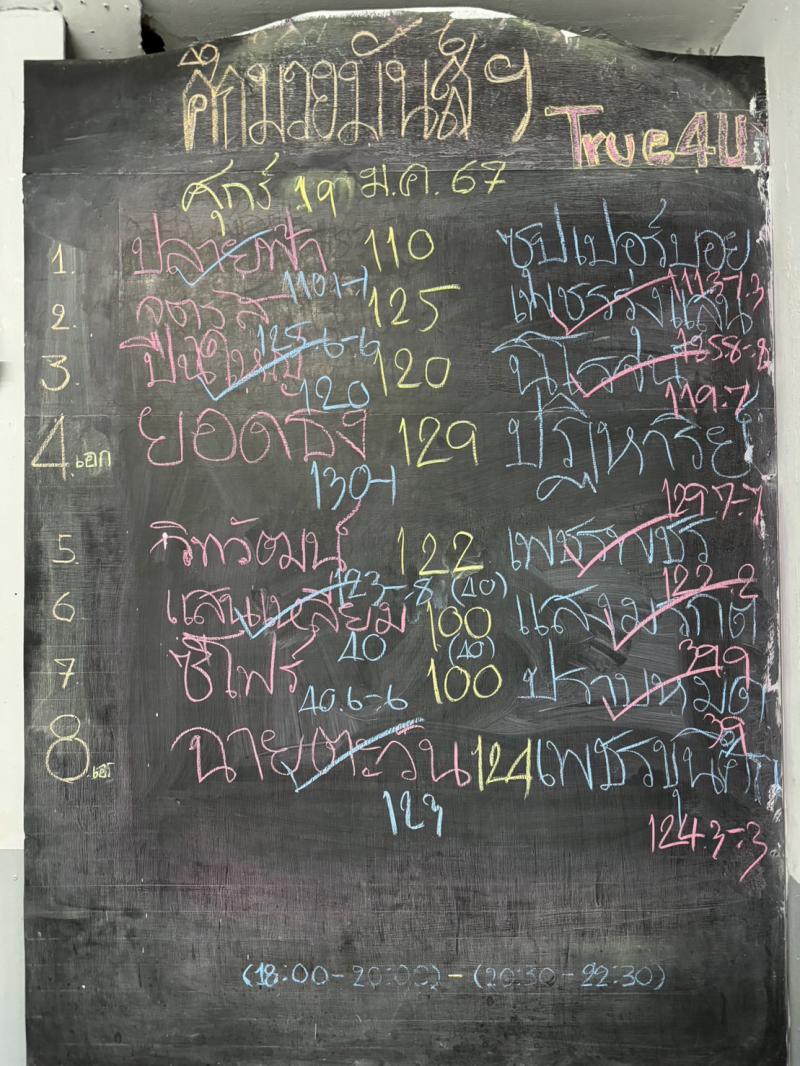 ศึกมวยมันส์ฯ
True4U
ศุกร์ 19 ม.ค. 67
1. ปลายฟ้า 110 ซุปเปอร์บอย
110.1-1 111.3-1.3
2. 125 เพชร
125.6-6
3. ปืนใหญ่ 120
120 119.7
4.เอก ยอดธง 129 ปฏิหาริย์
130-1 129.7-7
5. วิทวัฒน์ 122 เพชรพชร
123-.8 122-2
6 แสนเหลี่ยม 100 (40) แสงมรกต
40 39.9
7. ซีโฟร์ 100 (40) ปราบหมด
40.6-6 39
8.เอก ฉายตะวัน 124
123 124.3-.3
(18:00-20:00) - (20:30-22:30)